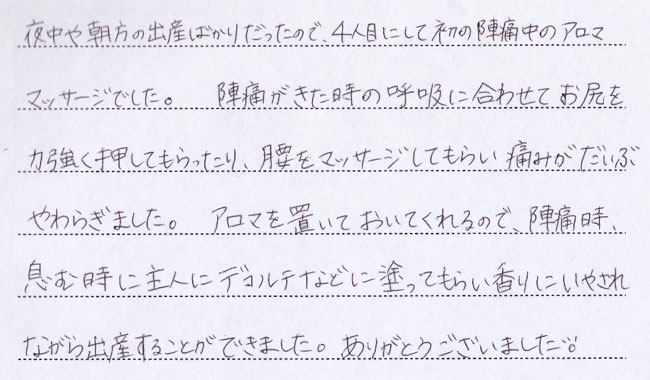 夜中や朝方の出産ばかりだったので、4人目にして初の陣痛中のアロマ
マッサージでした。 陣痛がきた時の呼吸に合わせてお尻を
力強く押してもらったり、腰をマッサージしてもらい痛みがだいぶ
やわらぎました。 アロマを置いておいてくれるので、陣痛時、
息む時に主人にデコルテなどに塗ってもらい香りにいやされ
ながら出産することができました。ありがとうございました